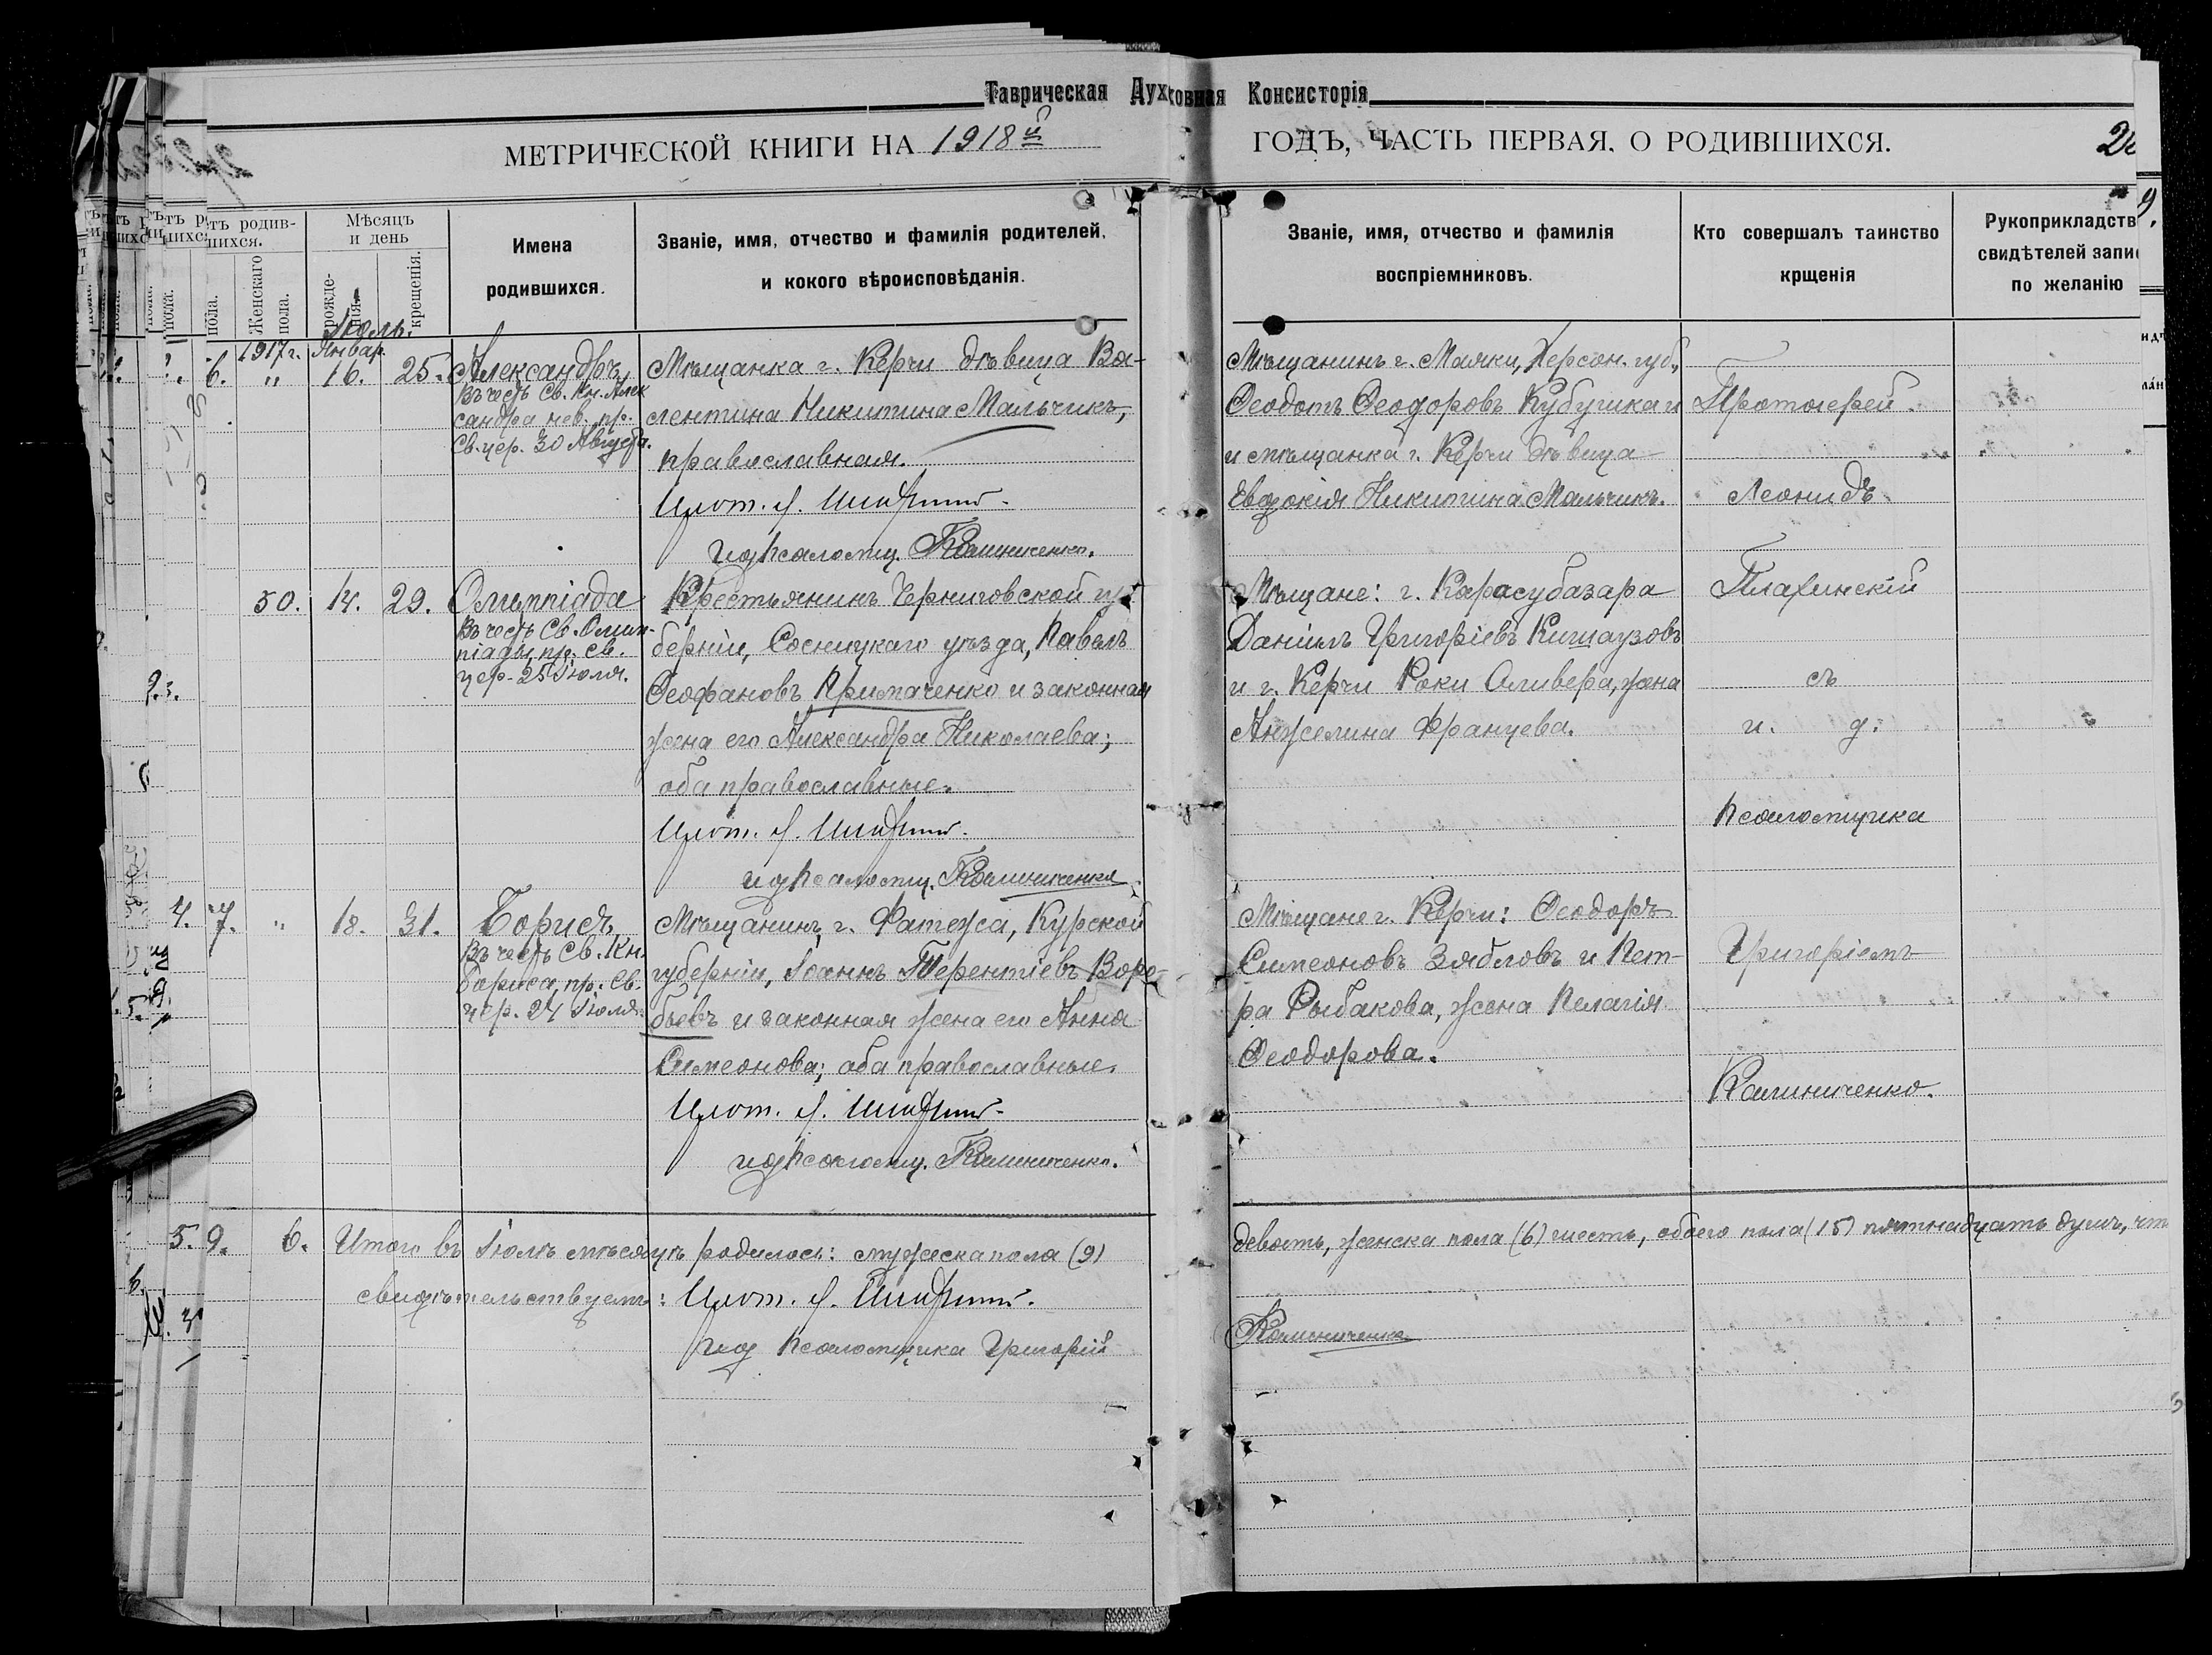 Таврическая Духовная Консисторія
МЕТРИЧЕСКОЙ КНИГИ НА 1918й ГОДЪ, ЧАСТЬ ПЕРВАЯ, О РОДИВШИХСЯ.
родив-
шихся.
Женскаго
пола.
Мѣсяцъ
и день
рожде-
нія.
крещенія.
Имена
родившихся.
Званіе, имя, отчество и фамилія родителей,
и кокого вѣроисповѣданія.
Званіе, имя, отчество и фамилія
воспріемниковъ.
Кто совершалъ таинство
крщенія
Рукоприкладств
свидѣтелей запи
по желанію
Іюль.
1917 г. Январ.
6. " 16. 25. Александръ
Въ честь Св. Кн. Алек
сандра нев. пр.
Св. цер. 30 Августа.
Мѣщанка г. Керчи дѣвица Ва-
лентина Никитина Мальчикъ,
православная.
Прот. Л.
и д псаломщ. Калиниченко.
Мѣщанинъ г. Маяки, Херсон. губ.,
Ѳеодотъ Ѳеодоровъ Кубушка и
и мѣщанка г. Керчи дѣвица
Евдокія Никитина Мальчикъ.
Протоіерей
Леонидъ
50. 14. 29. Олимпіада
Въ честь Св. Олим-
піады, пр. св.
цер. 25 Іюля.
Крестьянинъ Черниговской гу-
берніи, Сосницкаго уѣзда, Павелъ
Ѳеофановъ Примаченко и законная
жена его Александра Николаева;
оба православные.
Прот. Л.
и д псаломщ. Калиниченко
Мѣщане: г. Карасубазара
Даніилъ Григоріевъ Кишлаузовъ
и г. Керчи Роки Оливера, жена
Анжелина Францева.
Плахинскій
съ
и. д.
Псаломщика
7. " 18. 31. Борисъ
Въ честь Св. Кн.
Бориса, пр. Св.
цер. 24 Іюля.
Мѣщанинъ г. Фатежа, Курской
губерніи, Іоаннъ Терентіевъ Воро-
бьевъ и законная жена его Анна
Симеонова; оба православные.
Прот. Л.
и д псаломщ. Калиниченко.
Мѣщане г. Керчи: Ѳеодоръ
Симеоновъ Зябловъ и Пет-
ра Рыбакова, жена Пелагія
Ѳеодорова.
Григоріемъ
Калиниченко.
9. 6. Итого въ Іюлѣ мѣсяцѣ родилось: мужеска пола (9)
девять, женска пола (6) шесть, обоего пола (15) пятнадцать душъ, что
свидѣтельствуемъ: Прот. Л.
и д Псаломщика Григорій
Калиниченко